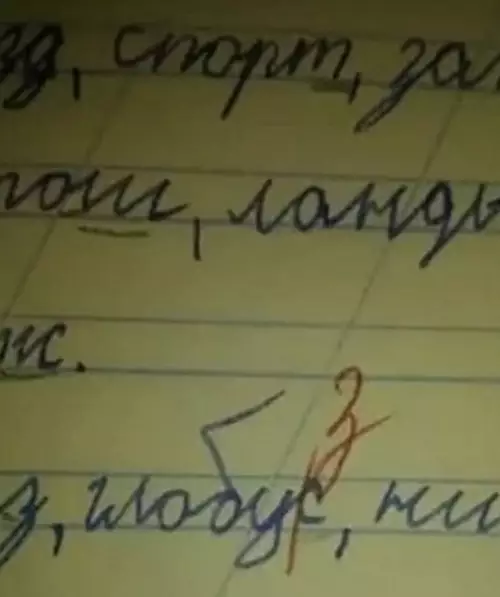 зд, спорт, за
ош, ланды
ж.
з
з, глобус, ни